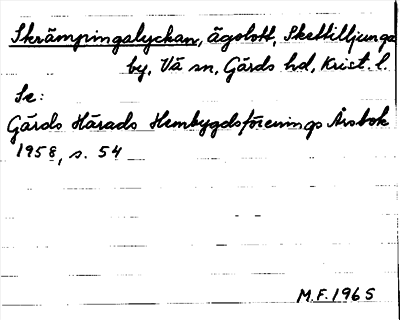 Skrämpingalyckan, ägolott, Skettilljunga
by, Vä sn, Gärds hd, Krist. l.
Se:
Gärds Härads Hembygdsförenings Årsbok
1958, s. 54
M.F. 1965